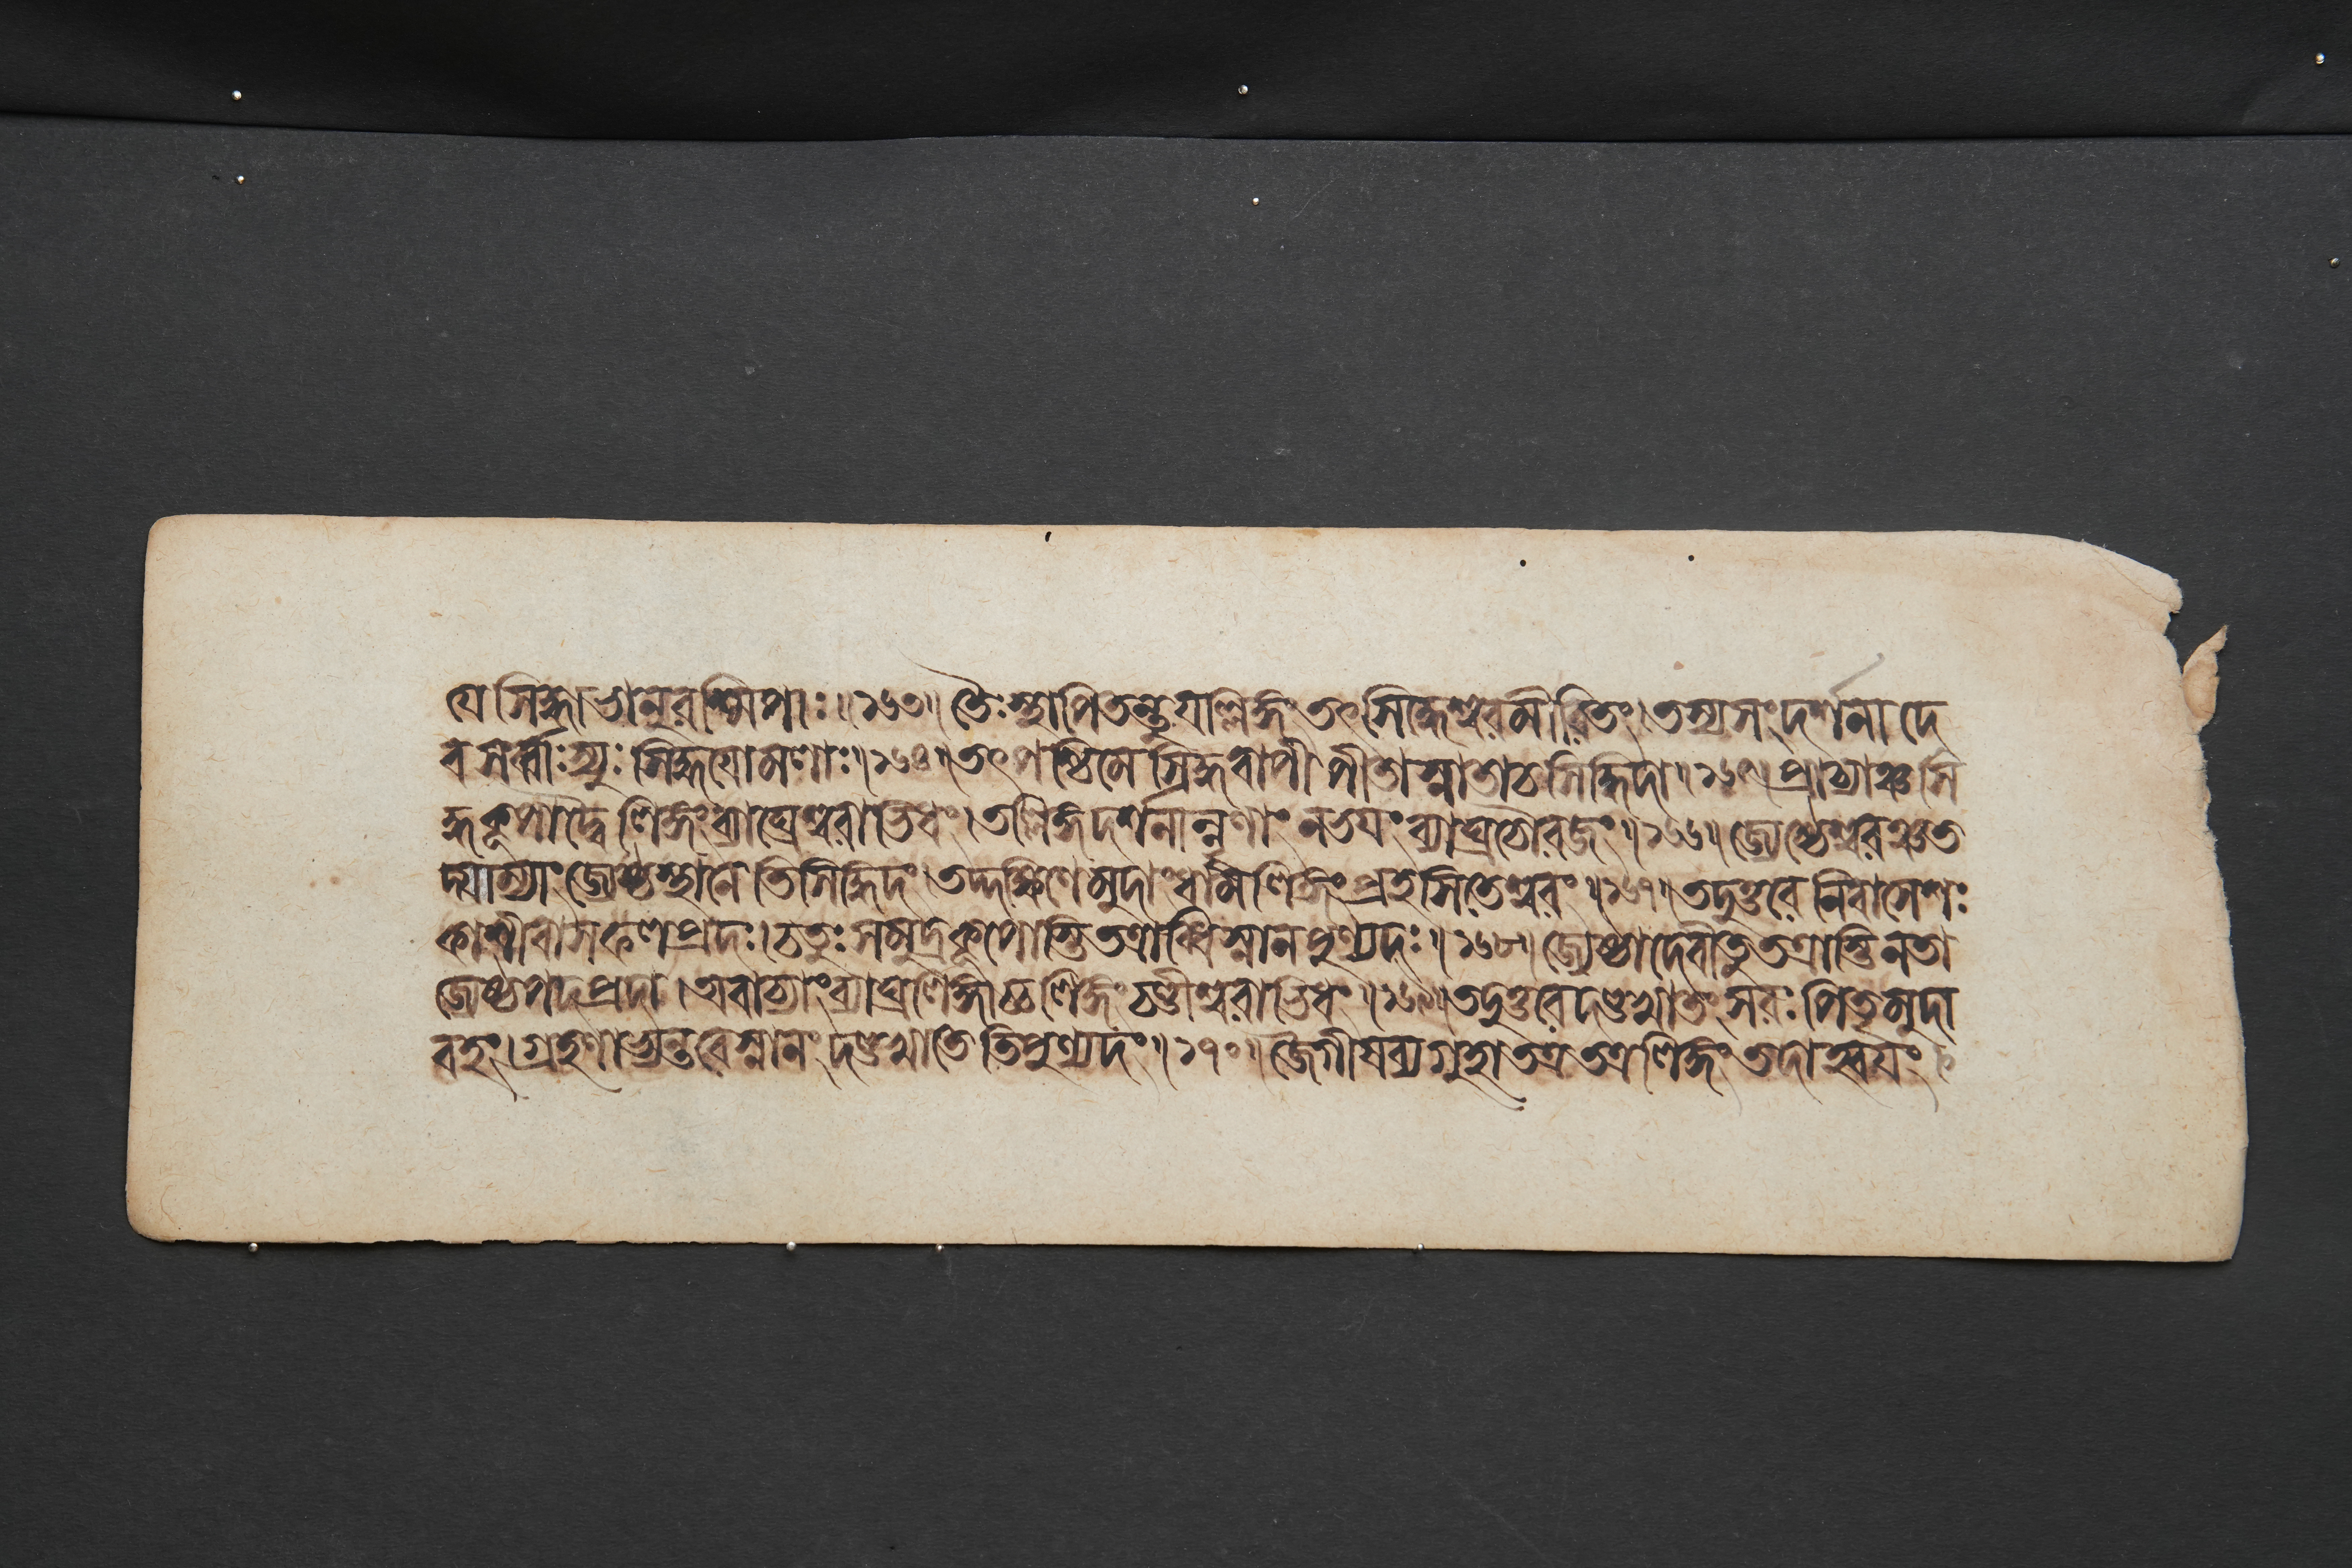 যে সিদ্ধা ভানুরশ্মিপাঃ॥১৬৩॥ তৈঃ স্থাপিতন্তু যল্লিঙ্গং তৎসিদ্ধেশ্বরমীরিতং। তস্য সংদর্শনাদে
ব সর্ব্বাঃ স্যুঃ সিদ্ধয়োমলাঃ॥১৬৪॥ তৎপশ্চিমে সিদ্ধবাপী পীতা স্নাতা চ সিদ্ধিদা॥১৬৫॥ প্রাচ্যাঞ্চ সি
দ্ধকূপাদ্বৈ লিঙ্গং ব্যাঘ্রেশ্বরাভিধং। তল্লিঙ্গদর্শনান্নৃণাং ন ভয়ং ব্যাঘ্রচৌরজং॥১৬৬॥ জ্যেষ্ঠেশ্বরঞ্চ ত
দ্যাম্যাং জ্যেষ্ঠস্থানেতিসিদ্ধিদং। তদ্দক্ষিণে মুদাং ধাম লিঙ্গং প্রহসিতেশ্বরং॥১৬৭॥ তদুত্তরে নিবাসেশঃ
কাশীবাসফলপ্রদঃ। চতুঃসমুদ্রকূপোস্তি তত্রাব্ধিস্নানপুণ্যদঃ॥১৬৮॥ জ্যেষ্ঠা দেবী তু তত্রাস্তি নতা
জ্যেষ্ঠপদপ্রদা। অবাচ্যাং ব্যাঘ্রলিঙ্গাচ্চ লিঙ্গং চণ্ডীশ্বরাভিধং॥১৬৯॥ তদুত্তরে দণ্ডখাতং সরঃ পিতৃমুদা
বহং। গ্রহণাভ্যন্তরে স্নানং দণ্ডখাতেতিপুণ্যদং॥১৭০॥ জৈগীষব্যগুহা তত্র তত্র লিঙ্গং তদাহ্বয়ং